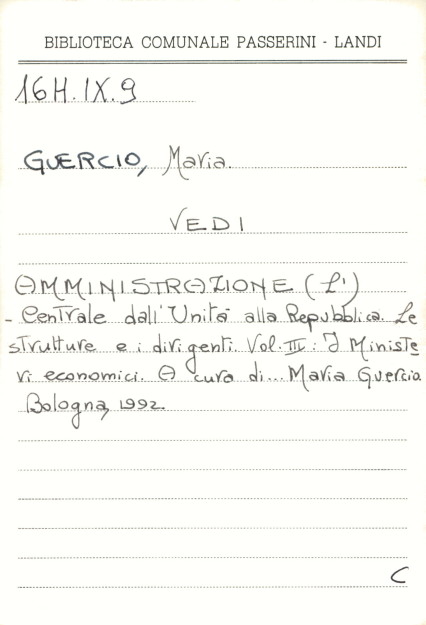 BIBLIOTECA COMUNALE PASSERINI - LANDI
16H.IX.9
GUERCIO, Maria.
VEDI
AMMINISTRAZIONE (L')
- Centrale dall'Unità alla Repubblica. Le
strutture e i dirigenti. Vol. III: I Ministe
ri economici. A cura di... Maria Guercio
Bologna, 1992.
C